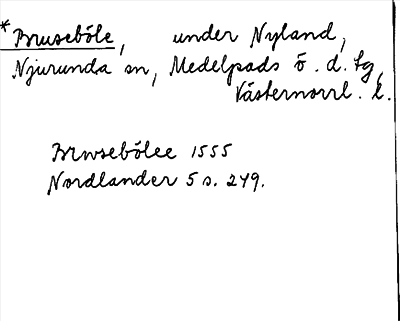 *Bruseböle, under Nyland,
Njurunda sn, Medelpads ö. d. tg,
Västernorrl. l.
Brwsebölee 1555
Nordlander 5 s. 249.